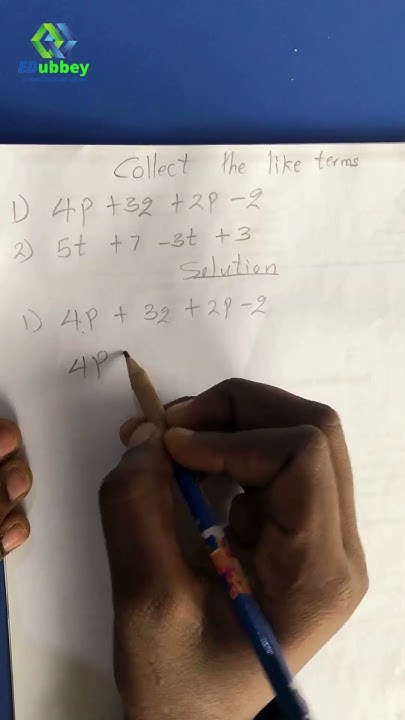 EDubbey
Collect the like terms
1) 4p + 32 + 2p - 2
2) 5t + 7 - 3t + 3
Solution
1) 4p + 32 + 2p - 2
4p